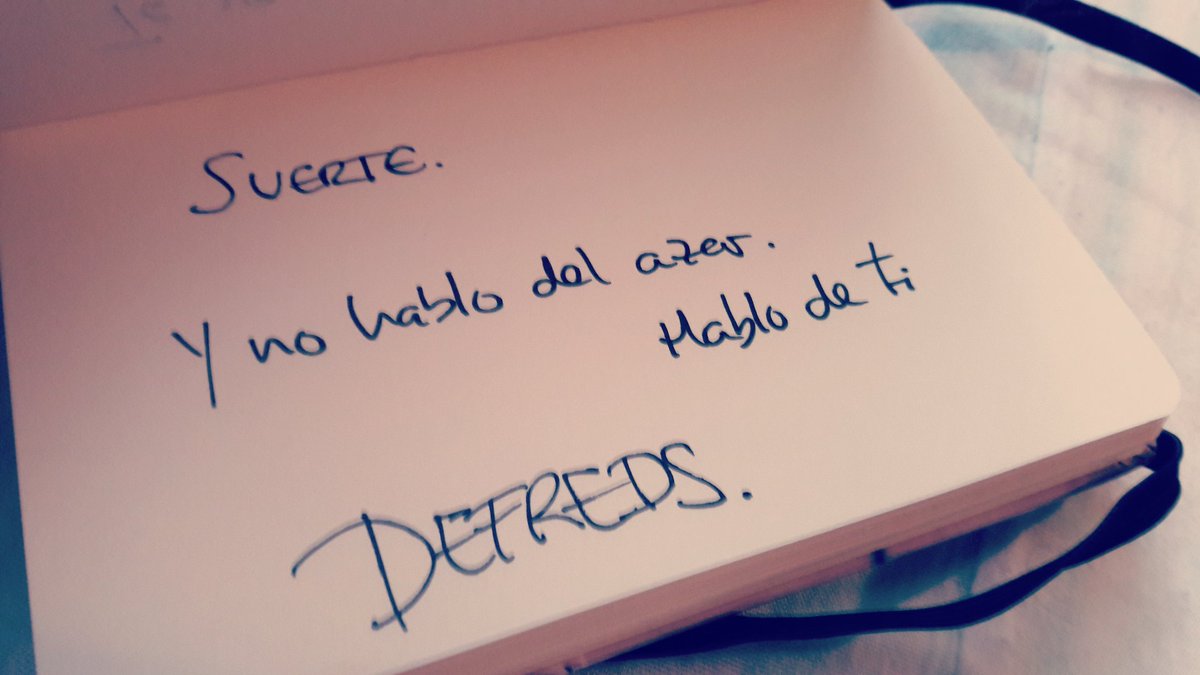 SUERTE.
Y no hablo del azar.
Hablo de ti
DEFREDS.